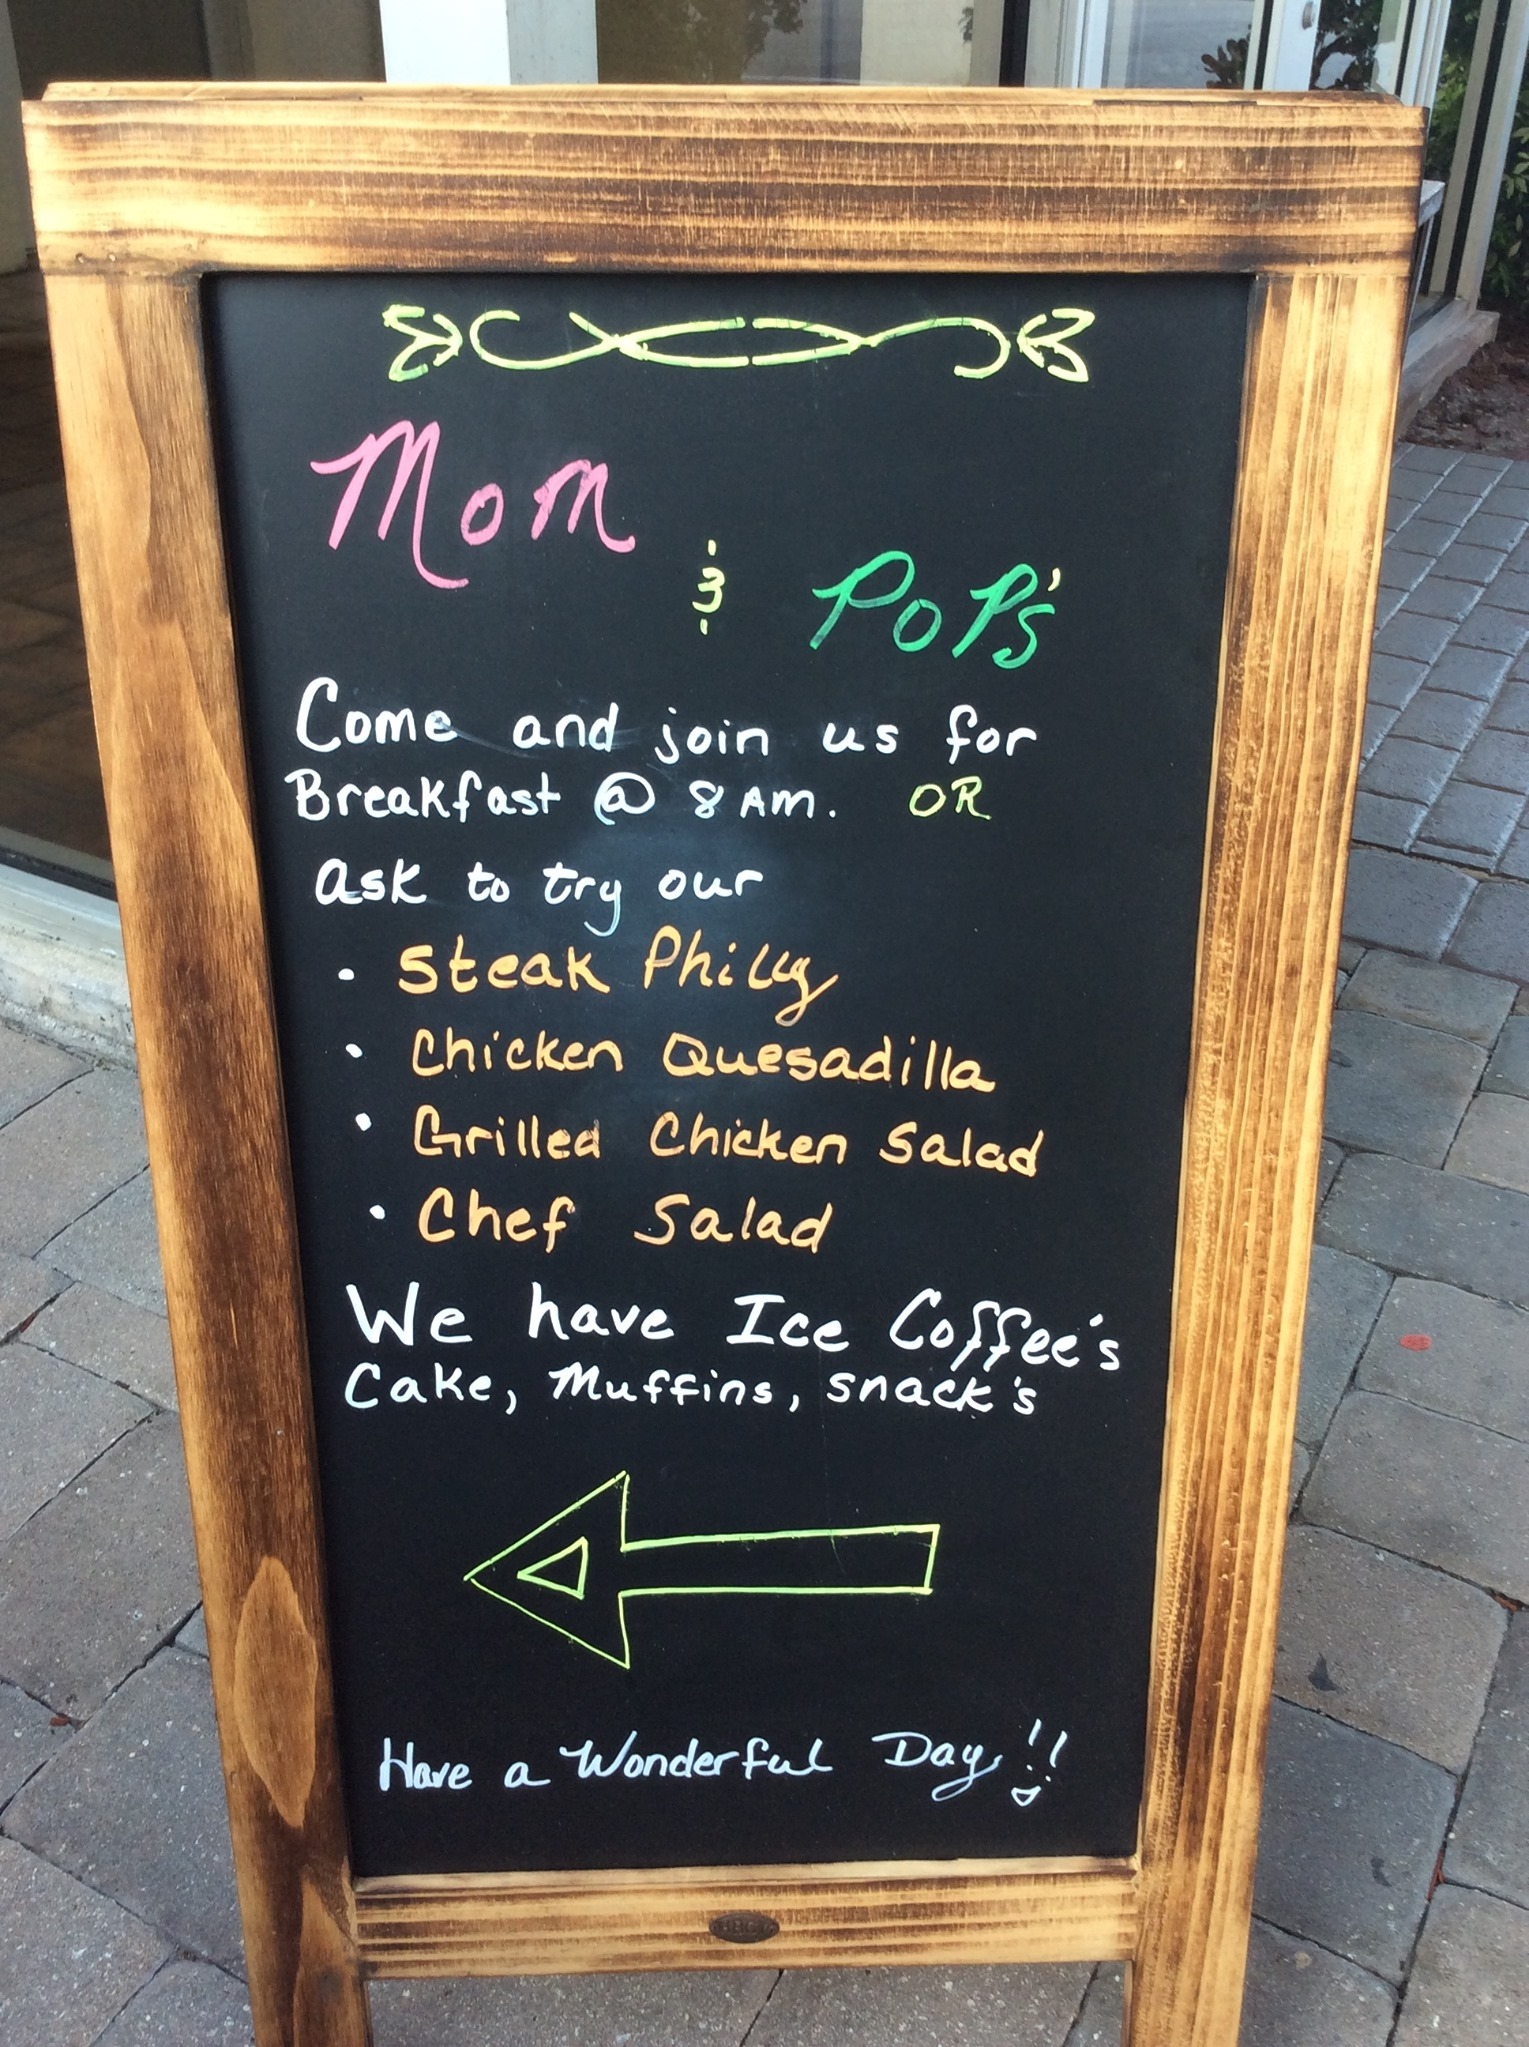 Mom & PoP's
Come and join us for
Breakfast @ 8 AM. OR
ask to try our
• Steak Philly
• Chicken Quesadilla
• Grilled Chicken Salad
• Chef Salad
We have Ice Coffee's
Cake, Muffins, snack's
Have a Wonderful Day!!